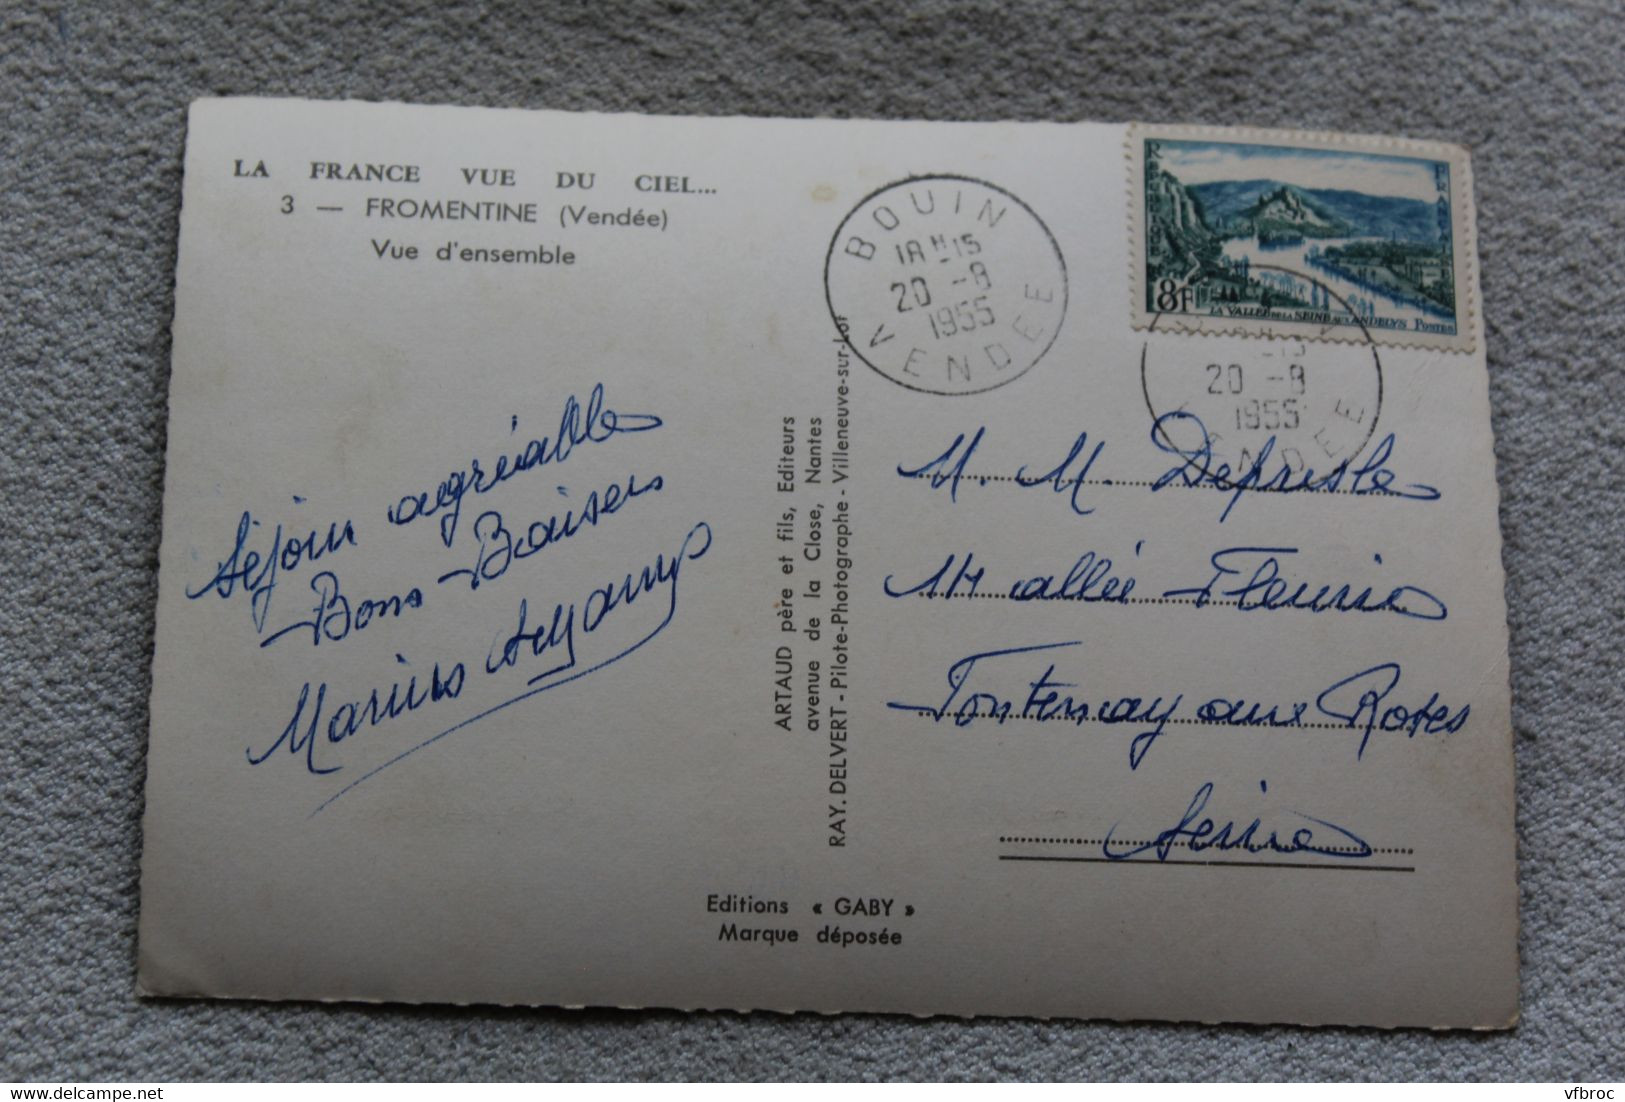 LA FRANCE VUE DU CIEL...
3 — FROMENTINE (Vendée)
Vue d'ensemble
BOUIN
18H15
20 -8
1955
VENDEE
REPUBLIQUE FRANCAISE
8F
LA VALLEE DE LA SEINE AUX ANDELYS POSTES
20 -8
1955
Séjour agréable
Bons Baisers
Marius
ARTAUD père et fils, Editeurs
avenue de la Close, Nantes
RAY. DELVERT - Pilote-Photographe - Villeneuve-sur-Lot
M. M. Depresle
allée Fleurie
Fontenay aux Roses
Seine
Editions « GABY »
Marque déposée
vfbroc